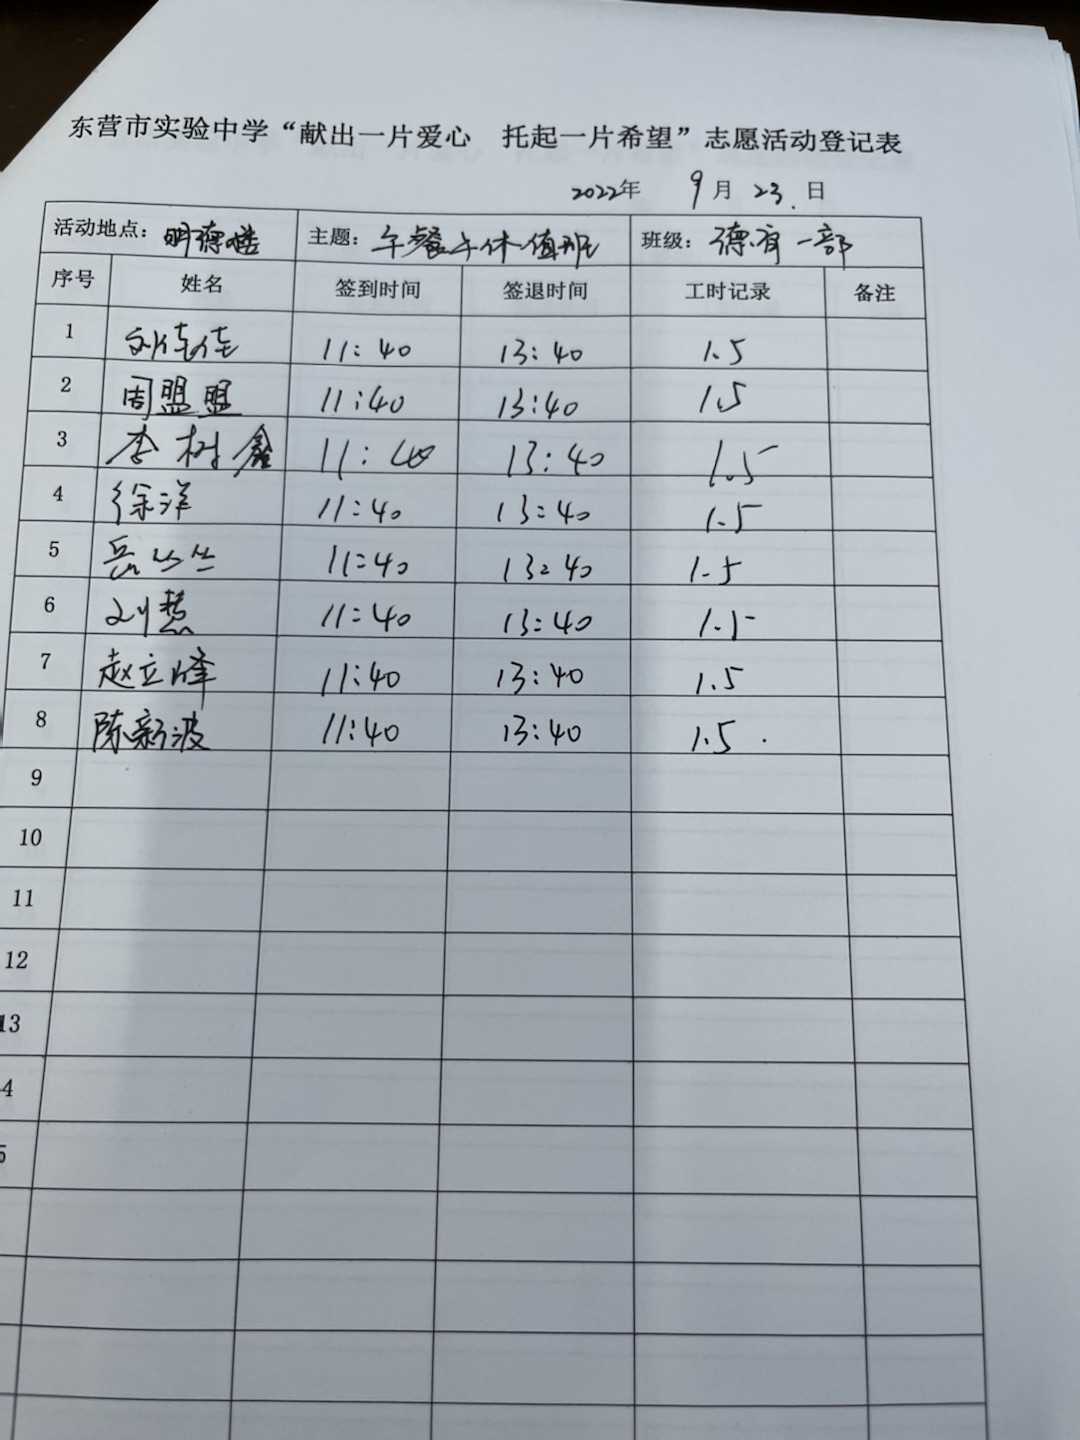 东营市实验中学“献出一片爱心 托起一片希望”志愿活动登记表
2022年 9月 23日
活动地点：明德楼 主题：午餐午休值班 班级：德育一部
序号 姓名 签到时间 签退时间 工时记录 备注
1 刘佳佳 11:40 13:40 1.5
2 周盟盟 11:40 13:40 1.5
3 李树鑫 11:40 13:40 1.5
4 徐洋 11:40 13:40 1.5
5 岳丝丝 11:40 13:40 1.5
6 刘慧 11:40 13:40 1.5
7 赵立峰 11:40 13:40 1.5
8 陈新波 11:40 13:40 1.5
9
10
11
12
13
4
5